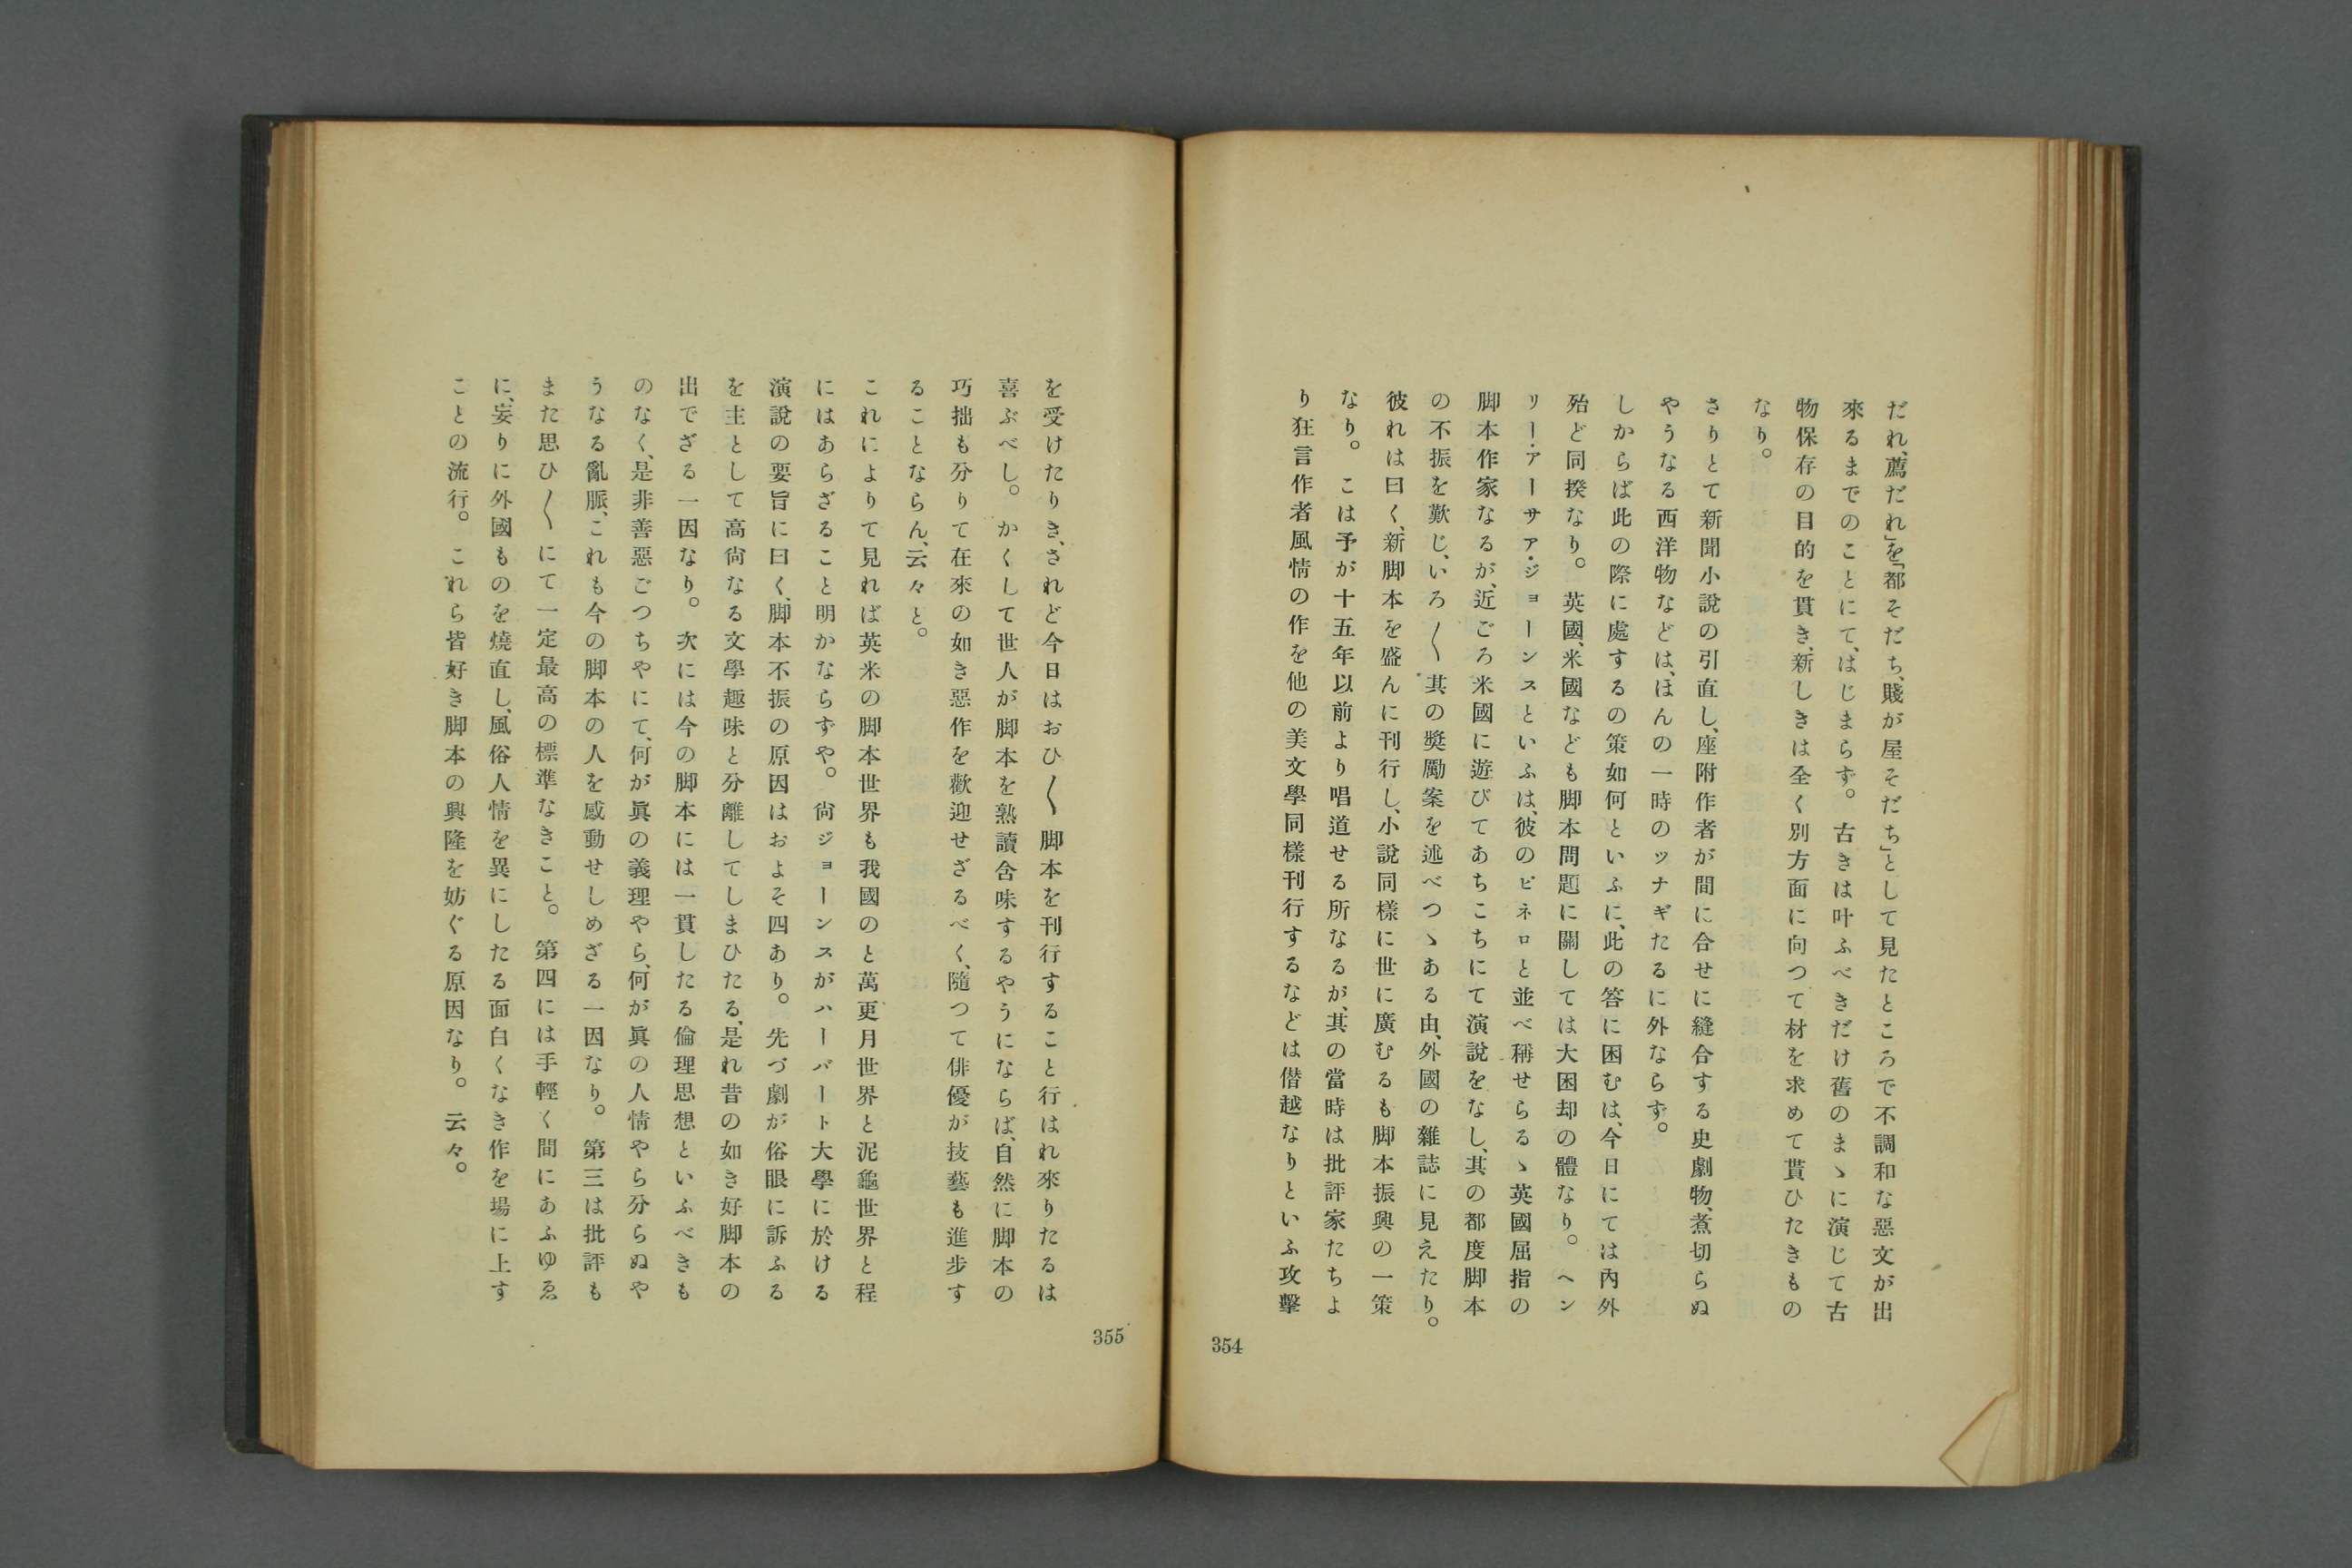 だれ、薦だれ」を「都そだち、賤が屋そだち」として見たところで不調和な惡文が出
來るまでのことにて、はじまらず。古きは叶ふべきだけ舊のまゝに演じて古
物保存の目的を貫き、新しきは全く別方面に向つて材を求めて貰ひたきもの
なり。
さりとて新聞小說の引直し、座附作者が間に合せに縫合する史劇物、煮切らぬ
やうなる西洋物などは、ほんの一時のツナギたるに外ならず。
しからば此の際に處するの策如何といふに、此の答に困むは、今日にては內外
殆ど同揆なり。英國、米國なども脚本問題に關しては大困却の體なり。ヘン
リー・アーサア・ジョーンスといふは、彼のピネロと並べ稱せらるゝ英國屈指の
脚本作家なるが、近ごろ米國に遊びてあちこちにて演說をなし、其の都度脚本
の不振を歎じ、いろ〱其の奬勵案を述べつゝある由、外國の雜誌に見えたり。
彼れは曰く、新脚本を盛んに刊行し、小說同樣に世に廣むるも脚本振興の一策
なり。こは予が十五年以前より唱道せる所なるが、其の當時は批評家たちよ
り狂言作者風情の作を他の美文學同樣刊行するなどは僣越なりといふ攻擊
354
を受けたりき、されど今日はおひ〱脚本を刊行すること行はれ來りたるは
喜ぶべし。かくして世人が脚本を熟讀含味するやうにならば、自然に脚本の
巧拙も分りて在來の如き惡作を歡迎せざるべく、隨つて俳優が技藝も進步す
ることならん、云々と。
これによりて見れば英米の脚本世界も我國のと萬更月世界と泥龜世界と程
にはあらざること明かならずや。尙ジョーンスがハーバート大學に於ける
演說の要旨に曰く、脚本不振の原因はおよそ四あり。先づ劇が俗眼に訴ふる
を主として高尙なる文學趣味と分離してしまひたる、是れ昔の如き好脚本の
出でざる一因なり。次には今の脚本には一貫したる倫理思想といふべきも
のなく、是非善惡ごつちやにて、何が眞の義理やら、何が眞の人情やら分らぬや
うなる亂脈、これも今の脚本の人を感動せしめざる一因なり。第三は批評も
また思ひ〱にて一定最高の標準なきこと。第四には手輕く間にあふゆゑ
に、妄りに外國ものを燒直し、風俗人情を異にしたる面白くなき作を場に上す
ことの流行。これら皆好き脚本の興隆を妨ぐる原因なり。云々。
355